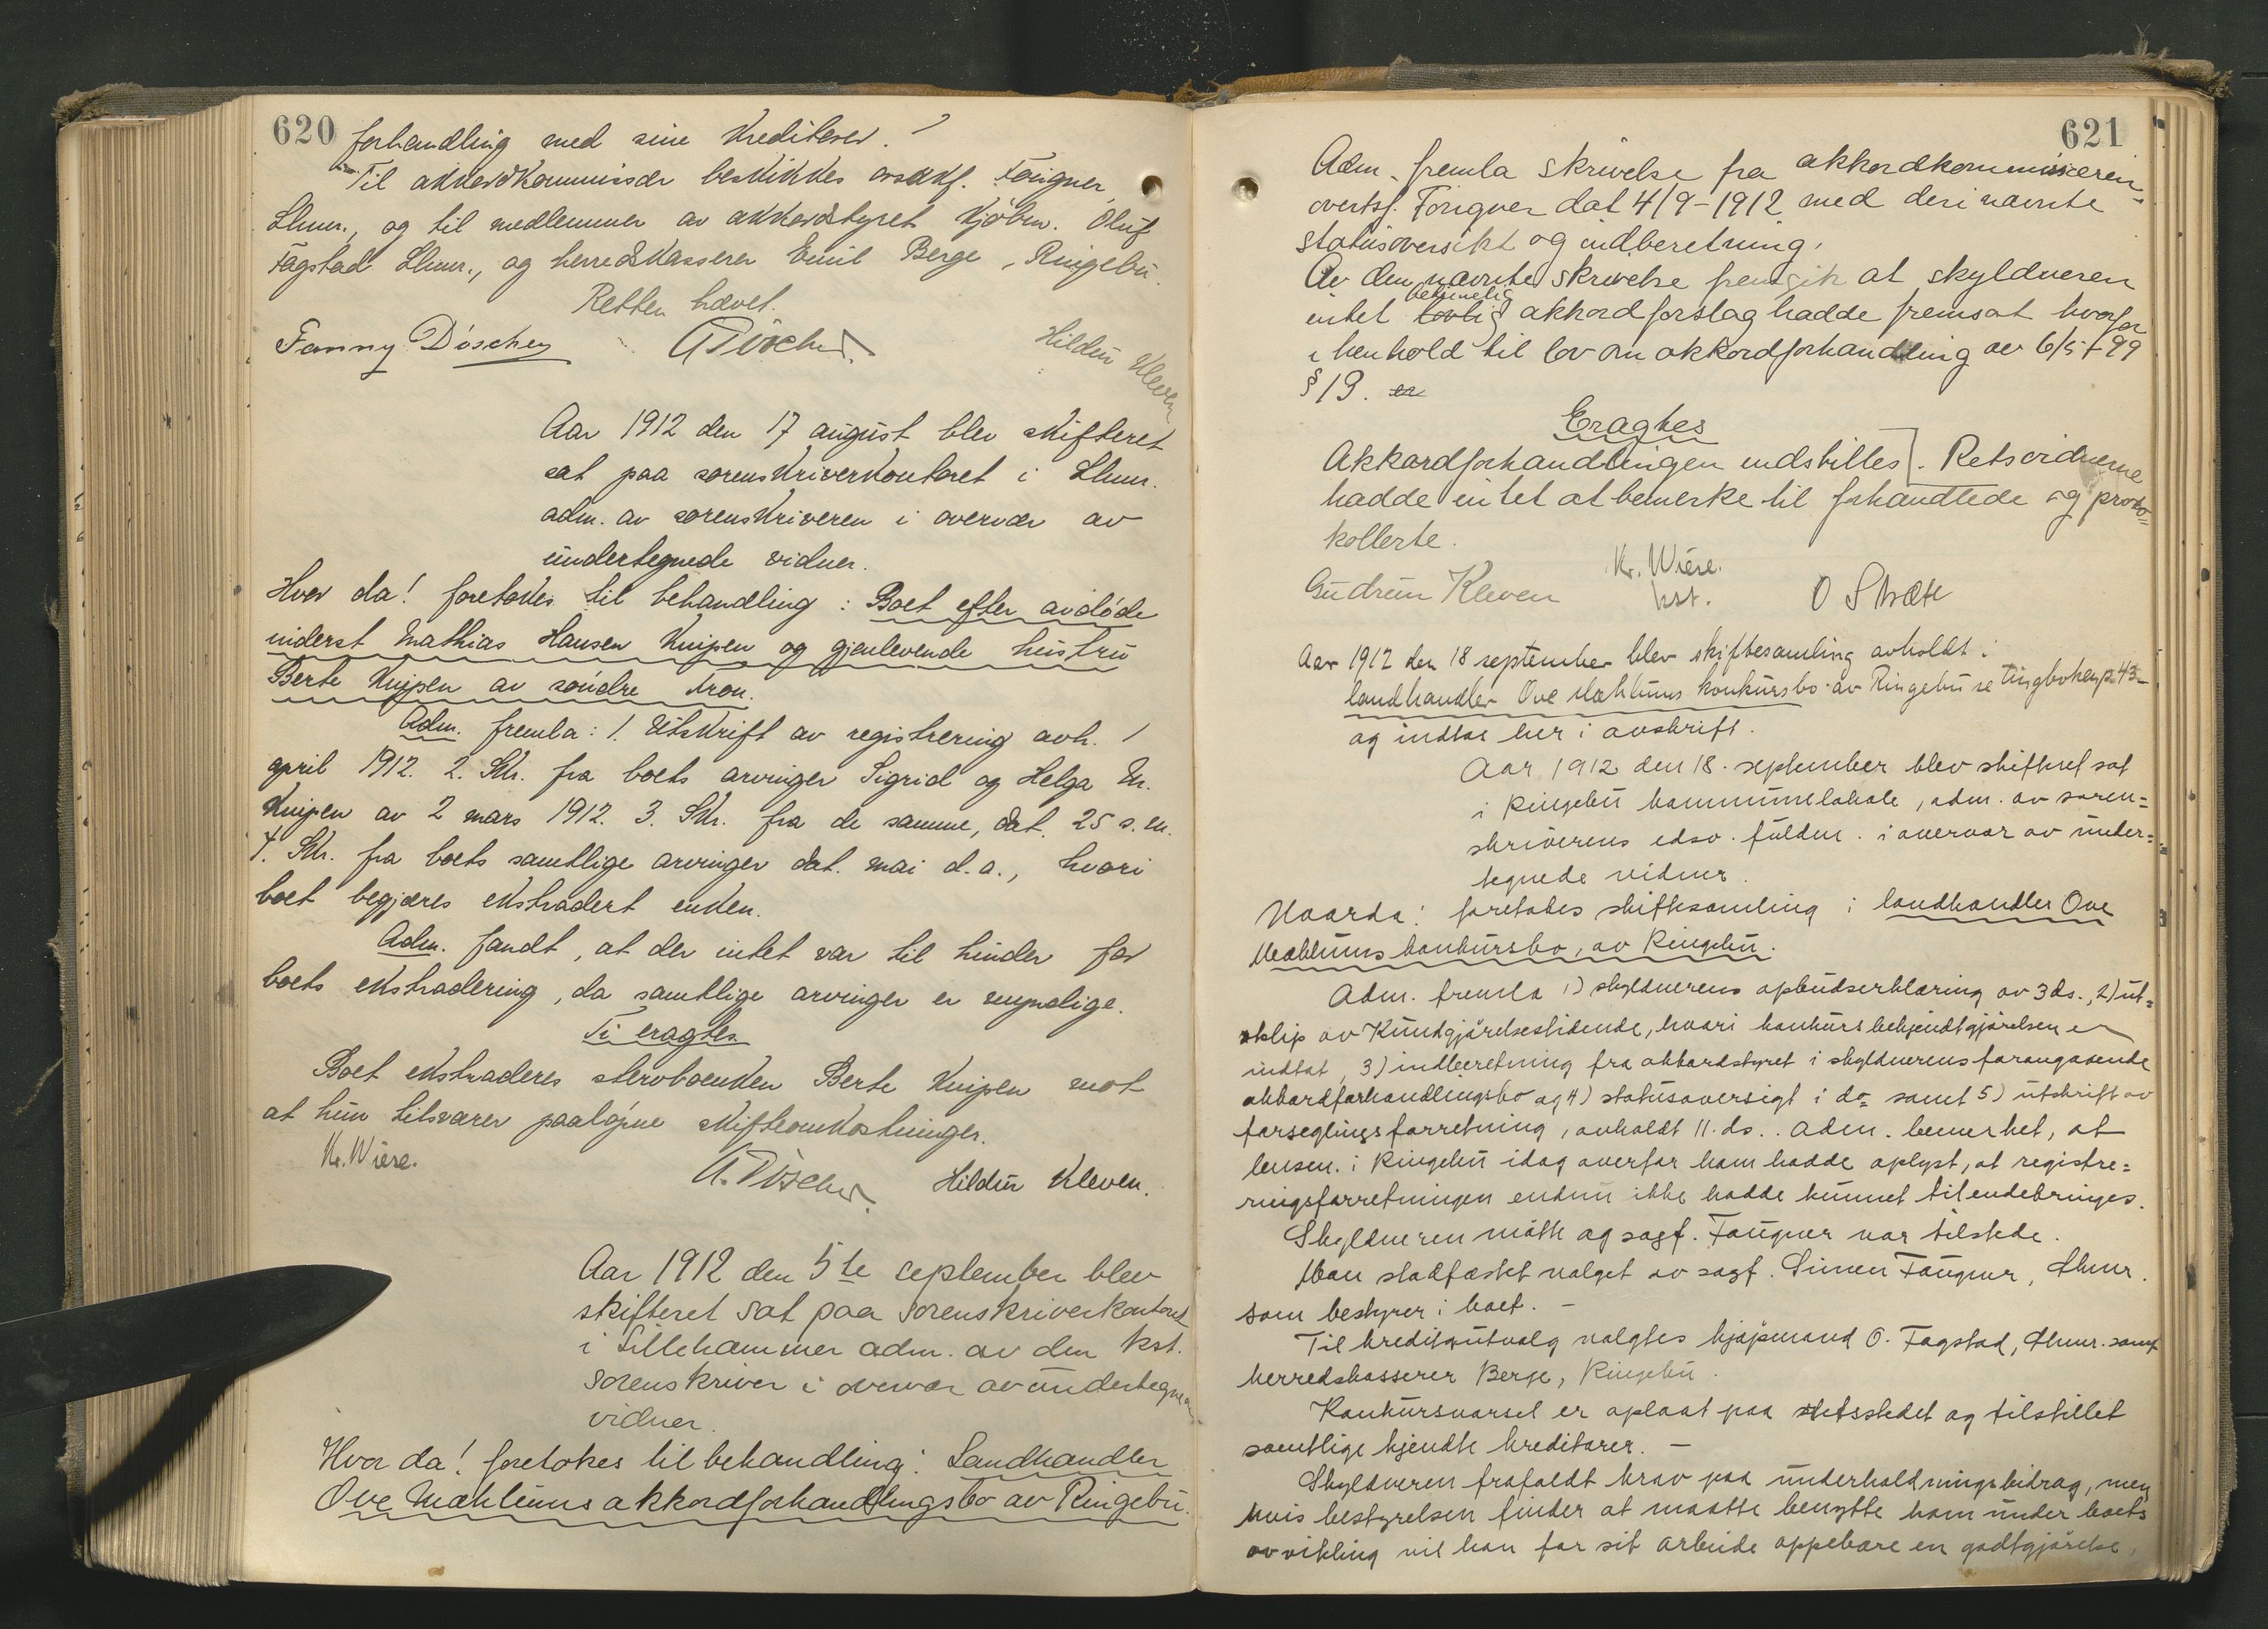 620
forhandling med sine Kreditorer.
Til akkordkommissær beskikkes orsakf. Fougner
Lhmr., og til medlemmer av akkordstyret Kjøbm. Oluf
Fagstad Lhmr., og herredskasserer Emil Berge, Ringebu.
Retten hævet.
Fanny Döscher A Döscher Hildur Kleven
Aar 1912 den 17 august blev skifteret
sat paa sorenskriverkontoret i Lhmr.
adm. av sorenskriveren i overvær av
undertegnede vidner.
Hvor da! foretokes til behandling: Boet efter avdøde
inderst Mathias Hansen Knipen og gjenlevende hustru
Berte Knipen av søndre Aron.
Adm. fremla: 1. Utskrift av registrering avh. 1
april 1912. 2. Skr. fra boets arvinger Sigrid og Helga M.
Knipen av 2 mars 1912. 3. Skr. fra de samme, dat. 25 s.m.
4. Skr. fra boets samtlige arvinger dat. mai d.a., hvori
boet begjæres ekstradert enken.
Adm. fandt, at der intet var til hinder for
boets ekstradering, da samtlige arvinger er myndige.
Ti eragtes
Boet ekstraderes stervboenken Berte Knipen mot
at hun tilsvarer paaløpne skifteomkostninger.
Kr. Wiese. A. Döscher Hildur Kleven.
Aar 1912 den 5te september blev
skifteret sat paa sorenskriverkontoret
i Lillehammer adm. av den kst.
sorenskriver i overvær av undertegnede
vidner.
Hvor da! foretokes til behandling: Landhandler
Ove Mæhlums akkordforhandlingsbo av Ringebu.
621
Adm. fremla skrivelse fra akkordkommissæren
overtsf. Fougner dat 4/9-1912 med deri nævnte
statusoversikt og indberetning.
Av den nævnte skrivelse fremgik at skyldneren
betimelig
intet lovlig akkordforslag hadde fremsat hvorfor
i henhold til lov om akkordforhandling av 6/5-99
§ 19. er
Eragtes
Akkordforhandlingen indstilles. Retsvidnerne
hadde intet at bemerke til forhandlede og proto=
kollerte.
Gudrun Kleven Kr. Wiese. kst. O Stræte
Aar 1912 den 18 september blev skiftesamling avholdt i
landhandler Ove Mæhlums konkursbo av Ringebu se tingboken p. 43
og indtas her i avskrift.
Aar 1912 den 18. september blev skifteret sat
i Ringebu kommunelokale, adm. av soren=
skriverens edsv. fuldm. i overvær av under=
tegnede vidner.
Hvorda! foretokes skiftesamling i landhandler Ove
Mæhlums konkursbo, av Ringebu.
Adm. fremla 1) skyldnerens opbudserklæring av 3 ds., 2) ut=
klip av Kundgjørelsestidende, hvori konkursbekjendtgjørelsen er
indtat, 3) indberetning fra akkordstyret i skyldnerens forangaaende
akkordforhandlingsbo og 4) statusoversigt i do= samt 5) utskrift av
forseglingsforretning, avholdt 11. ds.. Adm. bemerket, at
lensm. i Ringebu idag overfor ham hadde oplyst, at registre=
ringsforretningen endnu ikke hadde kunnet tilendebringes.
Skyldneren møtte og sagf. Fougner var tilstede.
Man stadfæstet valget av sagf. Simen Fougner, Lhmr.
som bestyrer i boet. -
Til kreditorutvalg valgtes kjøpmand O. Fagstad, Lhmr. samt
herredskasserer Berge, Ringebu.
Konkursvarsel er oplaat paa retsstedet og tilstillet
samtlige kjendte kreditorer. -
Skyldneren frafaldt krav paa underholdningsbidrag, men
hvis bestyrelsen finder at maatte benytte ham under boets
avvikling vil han for sit arbeide oppebære en godtgjørelse,